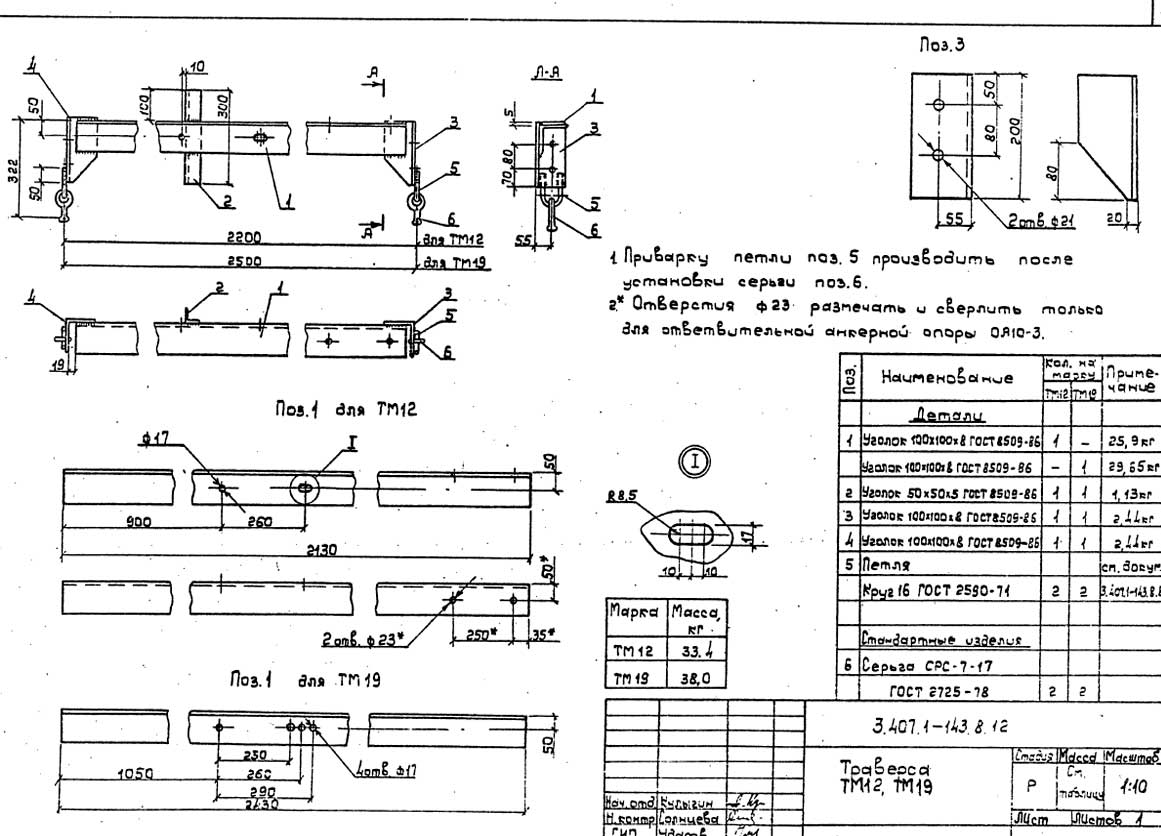 Поз.3
4
10
А
А-А
1
50
100
300
5
3
322
80
70
50
2
1
5
6
А
55
5
6
2200
для ТМ12
2500
для ТМ19
50
80
200
80
55
2 отв. ф21
20
1 Приварку петли поз. 5 производить после
установки серьги поз.6.
2* Отверстия ф23 размечать и сверлить только
для ответвительной анкерной опоры ОА10-3.
4
2
1
3
5
6
19
Поз.1 для ТМ12
ф17
I
50
900
260
2130
50*
2 отв. ф 23*
250*
35*
Поз.1 для ТМ 19
50
1050
230
260
290
2430
4 отв. ф17
I
R 8,5
17
10
10
Марка Масса, кг
ТМ 12 33.4
ТМ 19 38,0
Поз. Наименование Кол. на марку Приме-чание
ТМ12 ТМ19
Детали
1 Уголок 100х100х8 ГОСТ 8509-86 1 – 25,9 кг
Уголок 100х100х8 ГОСТ 8509-86 – 1 29,65 кг
2 Уголок 50х50х5 ГОСТ 8509-86 1 1 1,13 кг
3 Уголок 100х100х8 ГОСТ 8509-86 1 1 2,44 кг
4 Уголок 100х100х8 ГОСТ 8509-86 1 1 2,44 кг
5 Петля см. докум.
Круг 16 ГОСТ 2590-71 2 2 3.407.1-143.8.
Стандартные изделия
6 Серьга СРС-7-17
ГОСТ 2725-78 2 2
3.407.1-143.8.12
Траверса
ТМ12, ТМ19
Стадия Масса Масштаб
Р См. таблицу 1:10
Лист Листов 1
Нач. отд Кулыгин
Н. контр Солнцева
ГИП Ударов